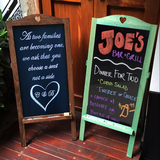 As two families
are becoming one,
we ask that you
choose a seat
not a side
JOE'S
BAR & GRILL
DINNER FOR TWO
SALAD